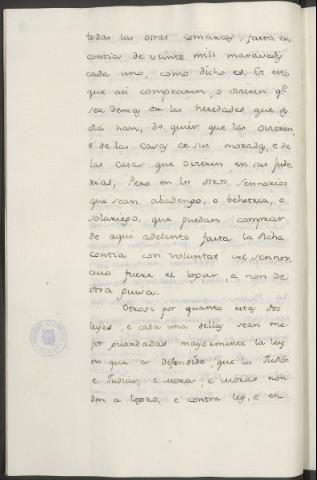 todas las otras comarcas, fasta en
contia de veinte mill maravedis
cada uno, como dicho es. Et esto
que asi compraren, o ovieren qe
sea demas de las heredades que oy
dia han, do quier que las ovieren,
e de las casas de su morada, e de
las casas que ovieren en sus jude
rias, Pero en los otros sennorios
que sean abadengo, o behetria, o
solariego, que puedan comprar
de aqui adelante fasta la dicha
contia con voluntat del sennor
cuio fuere el logar, e non de
otra guisa.
Otrosi por quanto estas dos
leyes, e cada una dellas sean me
jor guardadas mayormente la ley
en que es defendido, que los Judios
e Judias, e Moros, e Moras non
den a logro, e contra ley, e en